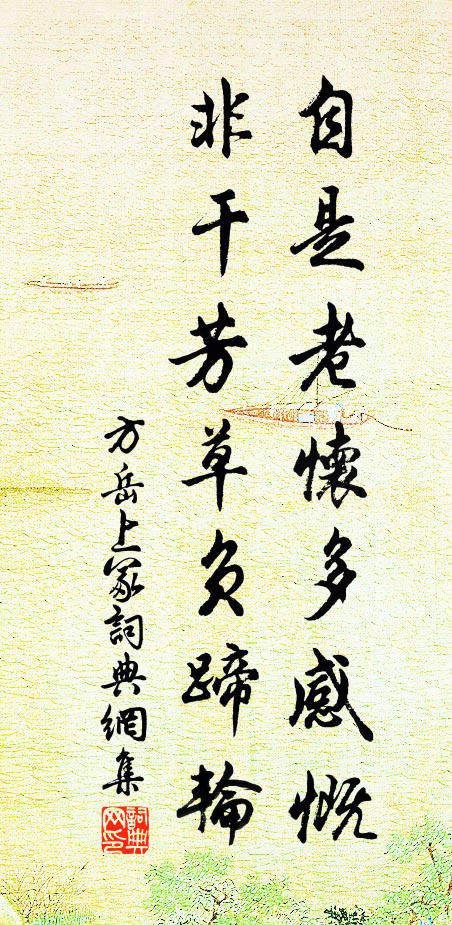 自是老懷多感慨
非干芳草負蹄輪
方岳上冢詞典網集
詞典網印